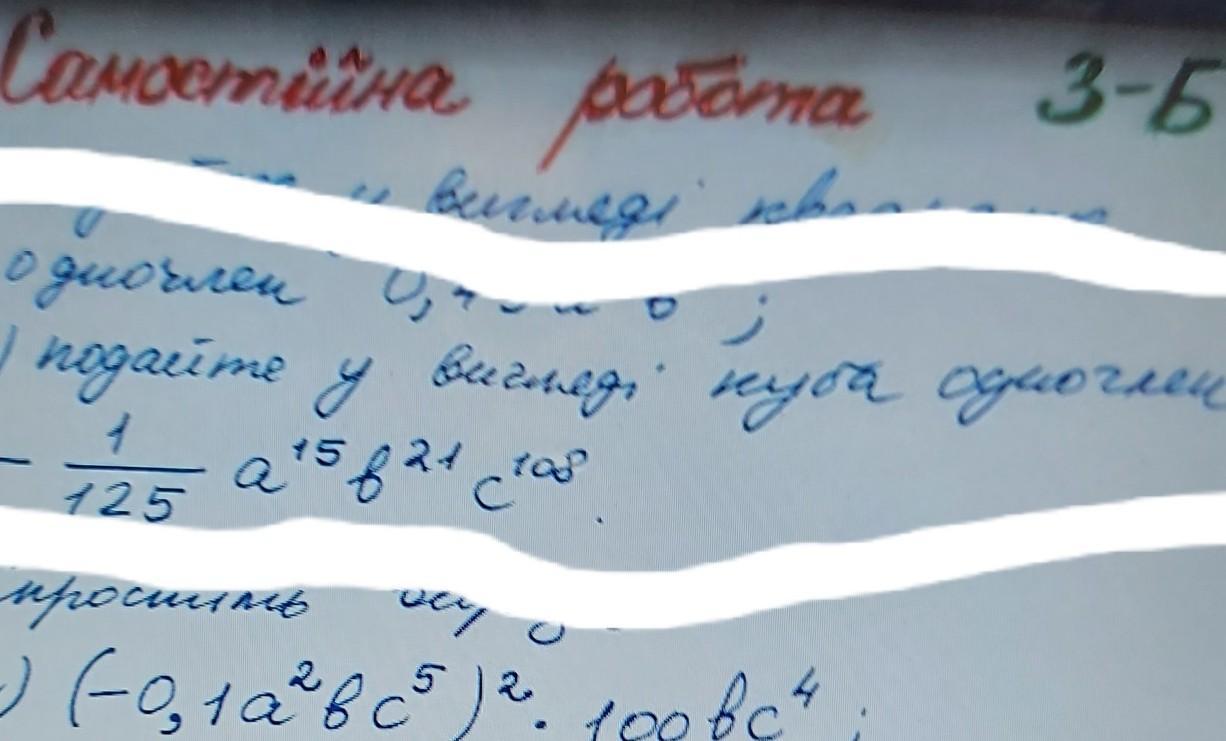 Самостійна робота 3-Б
у вигляді
одночлен
) подайте у вигляді куба одночлен
- 1/125 a¹⁵b²¹c¹⁰⁸.
) (-0,1a²bc⁵)². 100bc⁴;